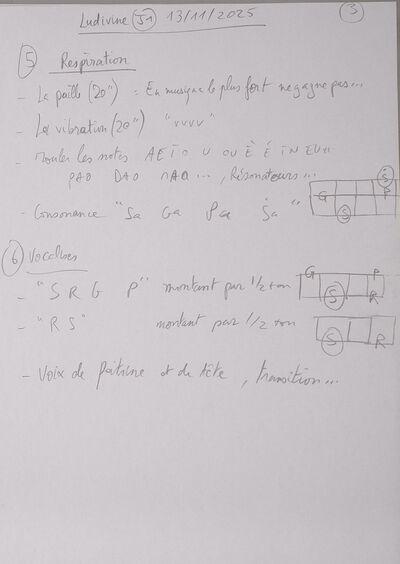 Ludivine J1 13/11/2025
3
5 Respiration
- La paille (20") : En musique le plus fort ne gagne pas...
- La vibration (20") "vvvv"
- Rouler les notes A E I O U OU È É IN EU
PAO DAO NAO..., Résonateurs...
- Consonance "Sa Ga Pa Ṡa"
G Ṡ P
S
6 Vocalises
- "S R G P" montant par 1/2 ton
G P
S R
- "R S" montant par 1/2 ton
S R
- Voix de Poitrine et de tête, transition...